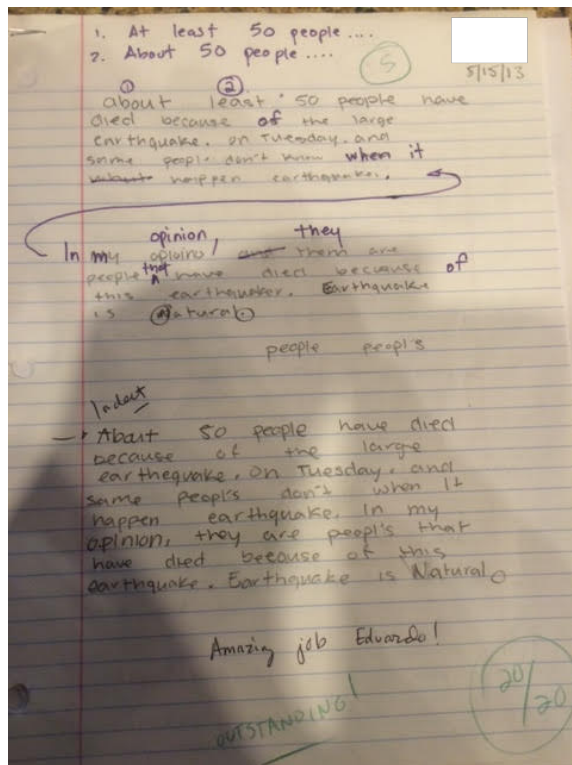 1. At least 50 people ....
2. About 50 people ....
5
5/15/13
① ②
about least 50 people have
died because of the large
earthquake. on Tuesday. and
some people don't know when it
happen earthquake.
opinion, they
In my opioino and them are
people that have died because of
this earthquaker. Earthquake
is Natural.
people peopl's
Indent
About 50 people have died
because of the large
earthequake. On Tuesday. and
some peopl's don't when it
happen earthquake. In my
opinion, they are peopl's that
have died because of this
earthquake. Earthquake is Natural.
Amazing job Eduardo!
OUTSTANDING!
20/20